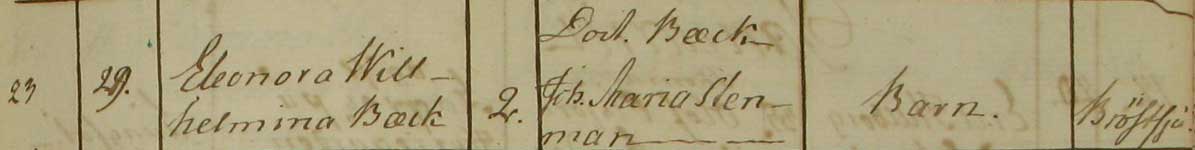 23 29. Eleonora Will-
helmina Bæck 2.
Doct. Bæck
Joh. Maria Sten-
man
Barn.
Bröstsju.